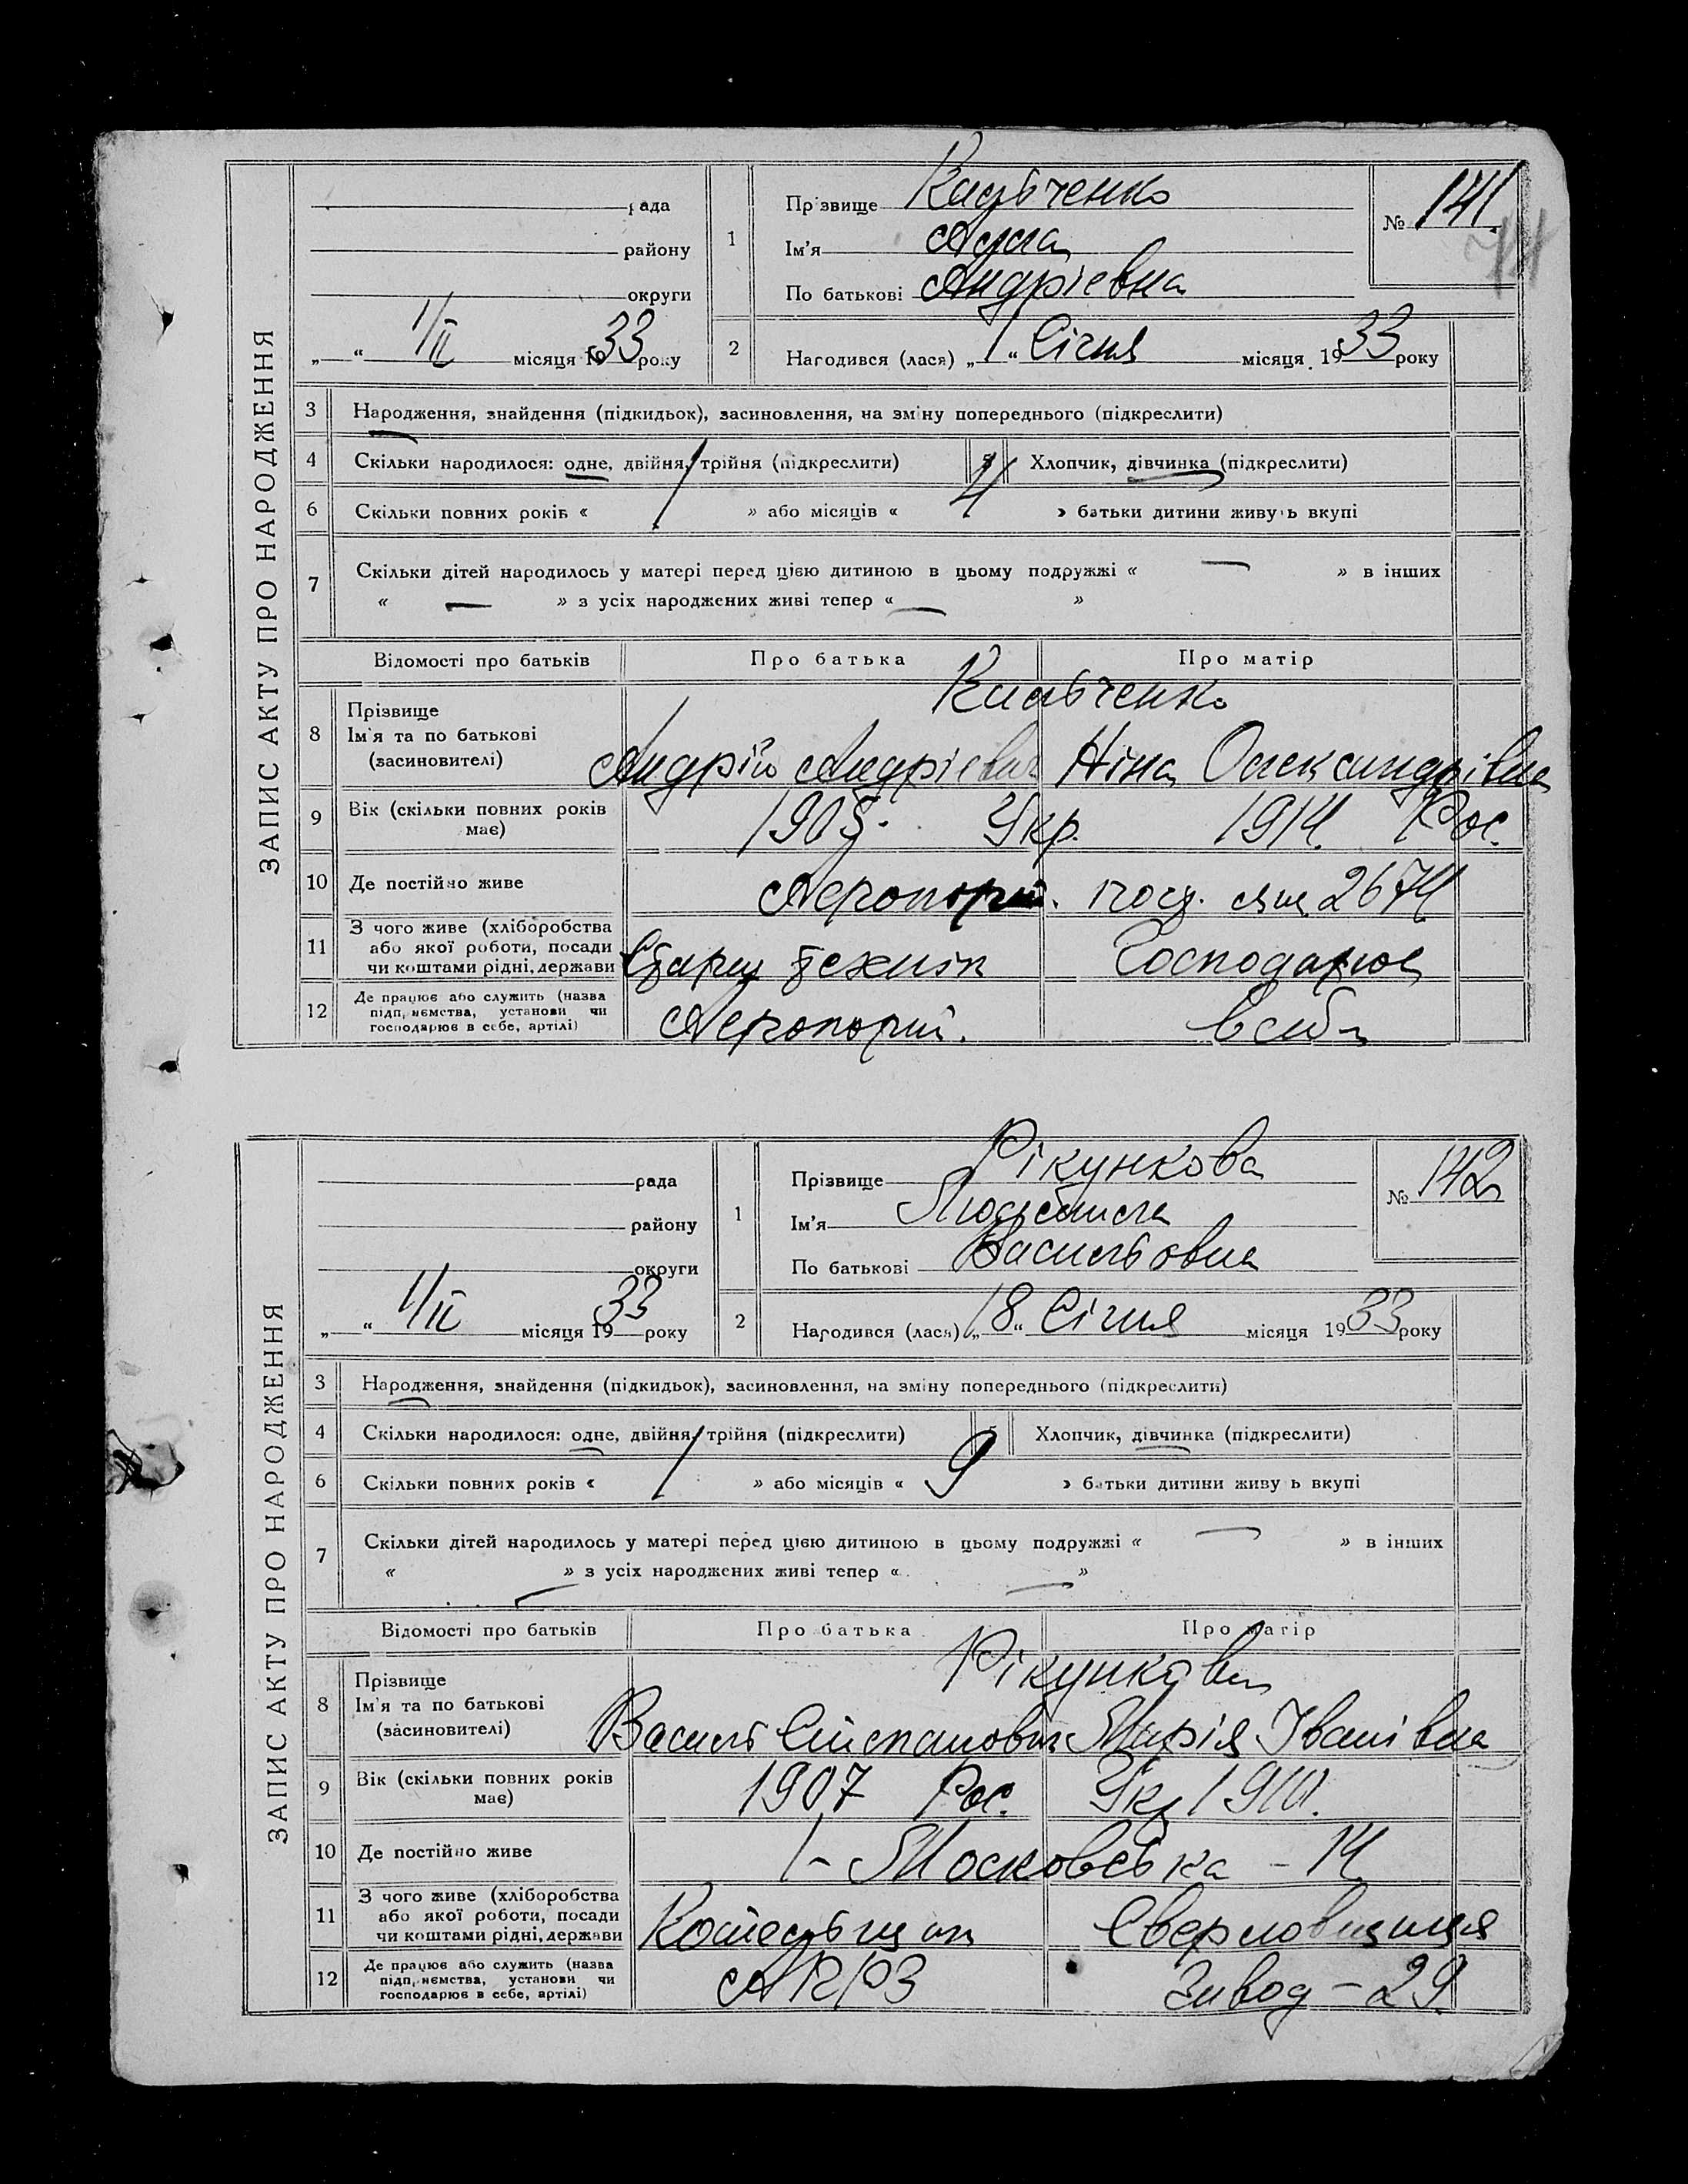 ЗАПИС АКТУ ПРО НАРОДЖЕННЯ
рада
району
округи
1/II місяця 1933 року
1
Прізвище Кильченко
Ім'я Алла
По батькові Андрієвна
№ 141.
74
2
Народився (лася) „1“ Січня місяця 1933 року
3 Народження, знайдення (підкидьок), засиновлення, на зміну попереднього (підкреслити)
4 Скільки народилося: одне, двійня, трійня (підкреслити)
5 Хлопчик, дівчинка (підкреслити)
6 Скільки повних років « 1 » або місяців « 4 » батьки дитини живуть вкупі
7 Скільки дітей народилось у матері перед цією дитиною в цьому подружжі « — » в інших
« — » з усіх народжених живі тепер « — »
Відомості про батьків Про батька Про матір
8 Прізвище
Ім'я та по батькові
(засиновителі)
Кильченко
Андрій Андрієвич Ніна Олександрівна
9 Вік (скільки повних років
має)
1905. Укр. 1914. Рос.
10 Де постійно живе
Аеропорт. пошт. ящ 2674
11 З чого живе (хліборобства
або якої роботи, посади
чи коштами рідні, держави
Старш технік Господарює
12 Де працює або служить (назва
підприємства, установи чи
господарює в себе, артілі)
Аеропорт. в себе
ЗАПИС АКТУ ПРО НАРОДЖЕННЯ
рада
району
округи
1/II місяця 1933 року
1
Прізвище Рікункова
Ім'я Людмила
По батькові Васильовна
№ 142
2
Народився (лася) „18“ Січня місяця 1933 року
3 Народження, знайдення (підкидьок), засиновлення, на зміну попереднього (підкреслити)
4 Скільки народилося: одне, двійня, трійня (підкреслити)
5 Хлопчик, дівчинка (підкреслити)
6 Скільки повних років « 1 » або місяців « 9 » батьки дитини живуть вкупі
7 Скільки дітей народилось у матері перед цією дитиною в цьому подружжі « — » в інших
« — » з усіх народжених живі тепер « — »
Відомості про батьків Про батька Про матір
8 Прізвище
Ім'я та по батькові
(засиновителі)
Рікункови
Василь Степанович Марія Іванівна
9 Вік (скільки повних років
має)
1907 Рос. Укр 1910.
10 Де постійно живе
1-Московська - 14
11 З чого живе (хліборобства
або якої роботи, посади
чи коштами рідні, держави
Котельщик Сверловщиця
12 Де працює або служить (назва
підприємства, установи чи
господарює в себе, артілі)
Завод - 29.